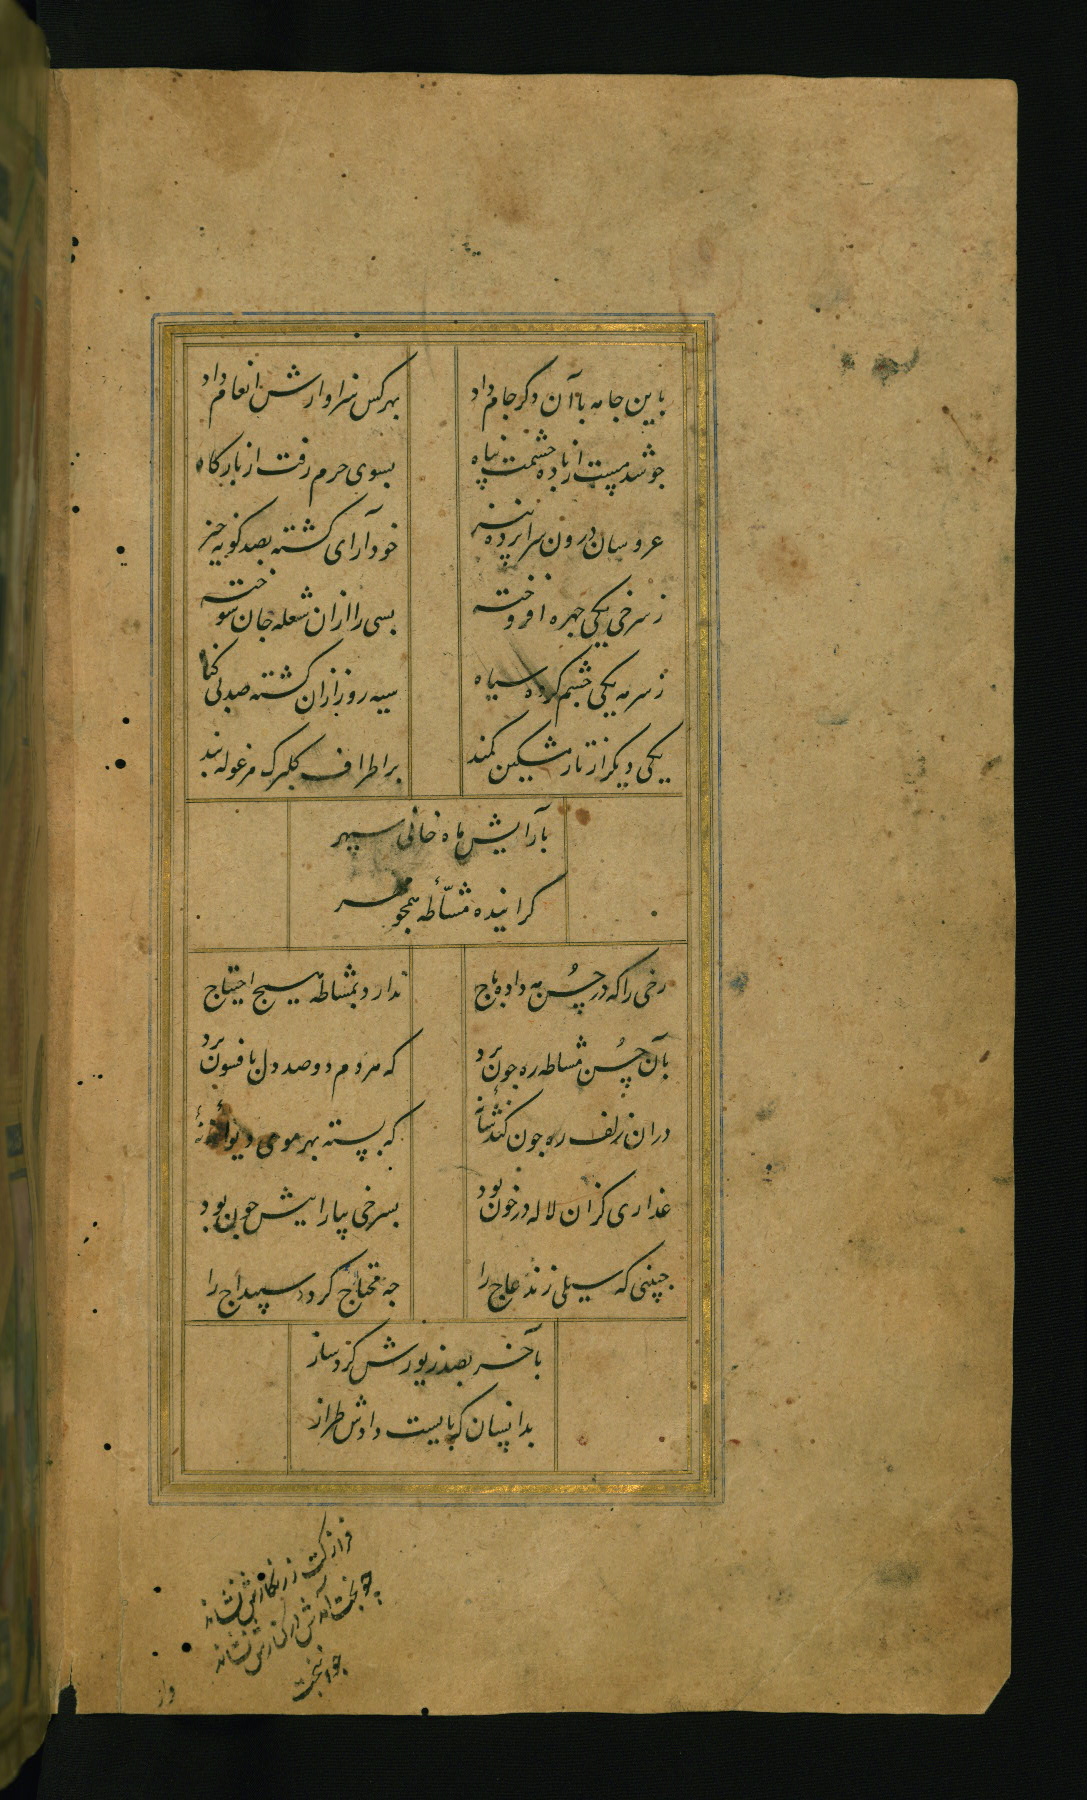 باین جامه باآن دکر جام داد بهر کس سزاوارش انعام داد
جو شد مست از باده حشمت پناه بسوی حرم رفت از بارکاه
عروسان درون سراپرده نیز خودآرای کشته بصد کونه جیز
ز سرخی یکی جهره افروخته بسی را ازان شعله جان سوخته
ز سرمه یکی جشم کرده سیاه سیه روز ازان کشته صد بی کناه
یکی دیکر از تار مشکین کمند بر اطراف کلبرک مرغوله بند
بآرایش ماه خانی سپهر
کراینده مشّاطهٔ همجو مهر
رخی را که در حُسن مه داد باج ندارد بمشاطه هیج احتیاج
بآن حُسن مشاطه ره جون برد که هر دم دوصد دل بافسون برد
دران زلف ره جون کند شانهٔ که بسته بهر موی دیوانهٔ
عذاری کزان لاله در خون بود بسرخی بیارایش جون بود
جبینی که سیلی زند عاج را جه محتاج کردد سپیداج را
بآخر بصد زیورش کرد ساز
بدانسان که بایست دادش طراز
فراز تخت زرنکارش نشاند
جو بخت آمدش در کنارش نشاند
جوانبخت